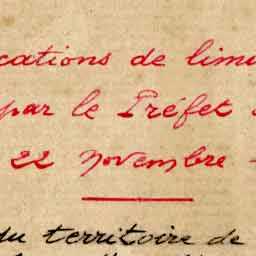 cations de limi
par le Préfet
22 novembre -
du territoire de